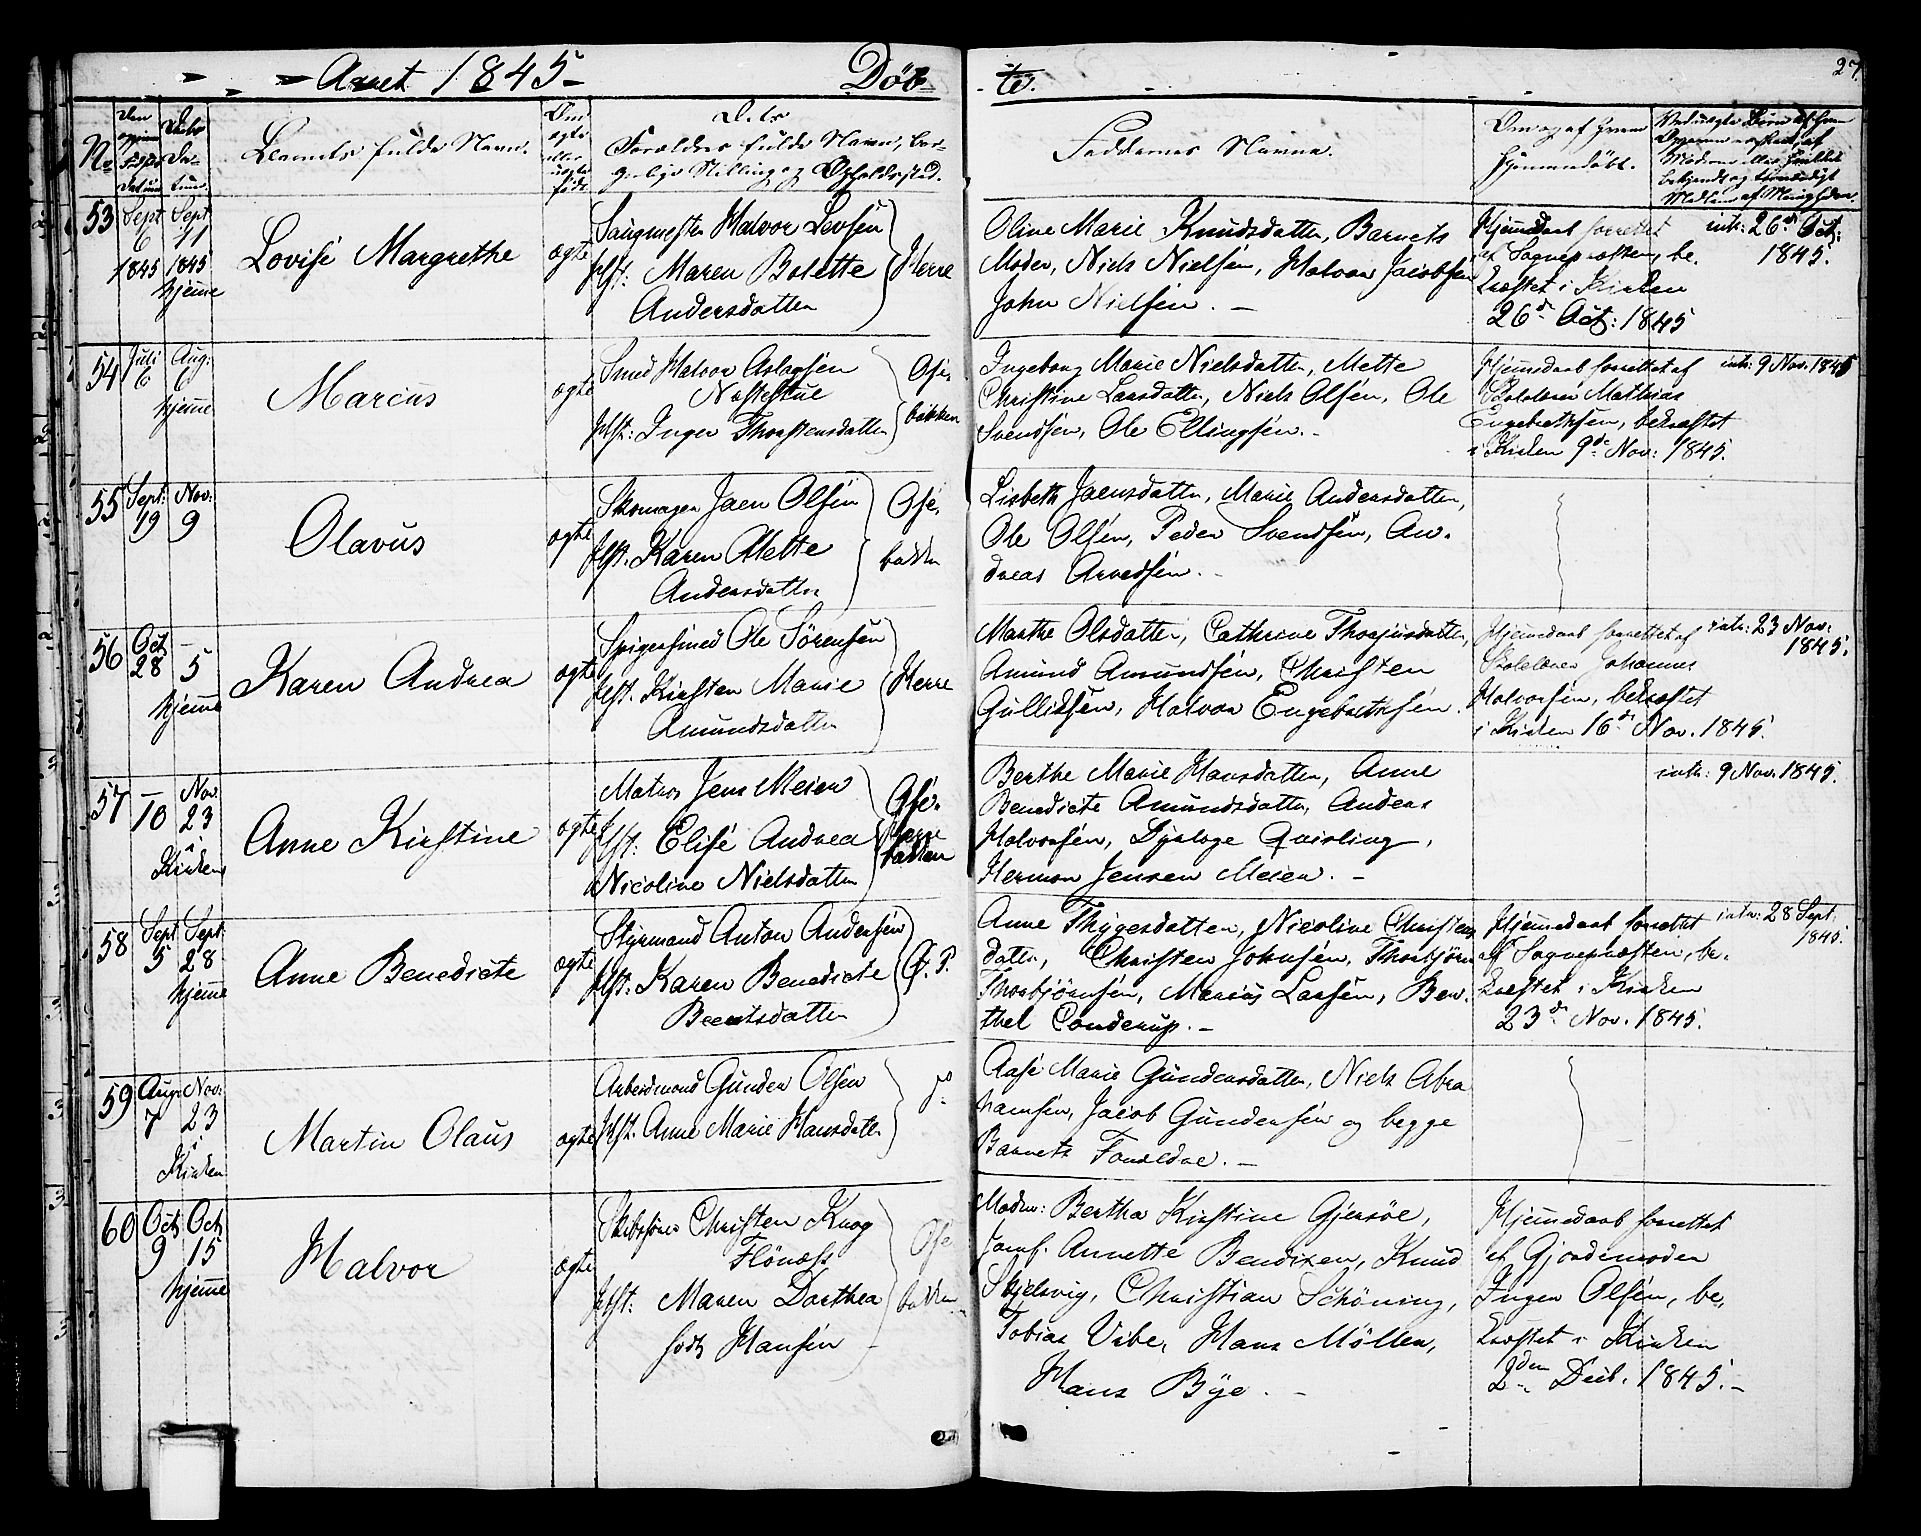 Aaret 1845
Døb
te.
27
No
Barnets fulde Navn.
Forældres fulde Navne, bor-
gerlige Stilling og Opholdssted.
Faddernes Navne.
Om og af hvem
hjemmedøbt.
53
Sept
6
1845
Sept
11
1845
hjemme
Lovise Margrethe
ægte
Saugmester Halvor Levsen
Hst: Maren Bolette
Andersdatter
Herre
Oline Marie Knudsdatter, Barnets
Moder, Niels Nielsen, Halvor Jacobsen
John Nielsen.
Hjemmedaab forrettet
af Sognepræsten, be-
kræftet i Kirken
26de Oct: 1845
intr: 26de Oct:
1845.
54
Juli
6
Aug:
6
hjemme
Marcus
ægte
Smed Halvor Aslagsen
Næstestue
Hst: Inger Thorstensdatter
Ose-
bakken
Ingeborg Marie Nielsdatter, Mette
Christine Larsdatter, Niels Olsen, Ole
Svendsen, Ole Ellingsen.
Hjemmedaab forrettet af
Skolelærer Mathias
Engebrethsen, bekræftet
i Kirken 9de Nov: 1845.
intr: 9 Nov. 1845
55
Sept:
19
Nov:
9
Olavus
ægte
Skomager Jaen Olsen
Hst. Karen Mette
Andersdatter
Ose-
bakken
Lisbeth Jaensdatter, Marie Andersdatter,
Ole Olsen, Peder Svendsen, An-
dreas Arvedsen.
56
Oct
28
5
hjemme
Karen Andrea
ægte
Spigersmed Ole Sørensen
Hst. Kirsten Marie
Amundsdatter
Herre
Marthe Olsdatter, Cathrine Thorjusdatter,
Amund Amundsen, Christen
Gulliksen, Halvor Engebrethsen.
Hjemmedaab forrettet af
Skolelærer Johannes
Halvorsen, bekræftet
i Kirken 16de Nov. 1845.
intr: 23 Nov:
1845.
57
10
Nov.
23
i
Kirken
Anne Kirstine
ægte
Matros Jens Meier
Hst: Elise Andrea
Nicoline Nielsdatter
Ose-
bakken
Berthe Marie Hansdatter, Anne
Benedicte Amundsdatter, Anders
Halvorsen, Dyeloge Qvisling,
Herman Jensen Meier.
intr: 9 Nov. 1845.
58
Sept
5
Sept
28
hjemme
Anne Benedicte
ægte
Styrmand Anton Andersen
Hst: Karen Benedicte
Beentsdatter
Ø. P.
Anne Thygesdatter, Nicoline Christens
datter, Christen Johnsen, Thorbjørn
Thorbjørnsen, Marius Larsen, Ber-
thel Conderup.
Hjemmedaab forrettet
af Sognepræsten, be-
kræftet i Kirken
23de Nov. 1845.
intr: 28 Sept.
1845.
59
Aug:
7
Nov:
23
i
Kirken
Martin Olaus
ægte
Arbeidsmand Gunder Olsen
Hst. Anne Marie Hansdatter
do
Aase Marie Gundersdatter, Niels Abra
hamsen, Jacob Gundersen og begge
Barnets Forældre.
60
Oct
9
Oct
15
hjemme
Halvor
ægte
Skibsfører Christen Knog
Flönæss
Hst: Maren Dorthea
født Hansen
Ose
bakken
Moder: Bertha Kirstine Gjersöe,
Jomf. Annette Bendixen, Knud
Skjelsvig, Christian Schöning,
Tobias Vibe, Hans Möller,
Hans Bye.
Hjemmedaab forrettet
af Gjordemoder
Inger Olsen, be-
kræftet i Kirken
2den Decb. 1845.